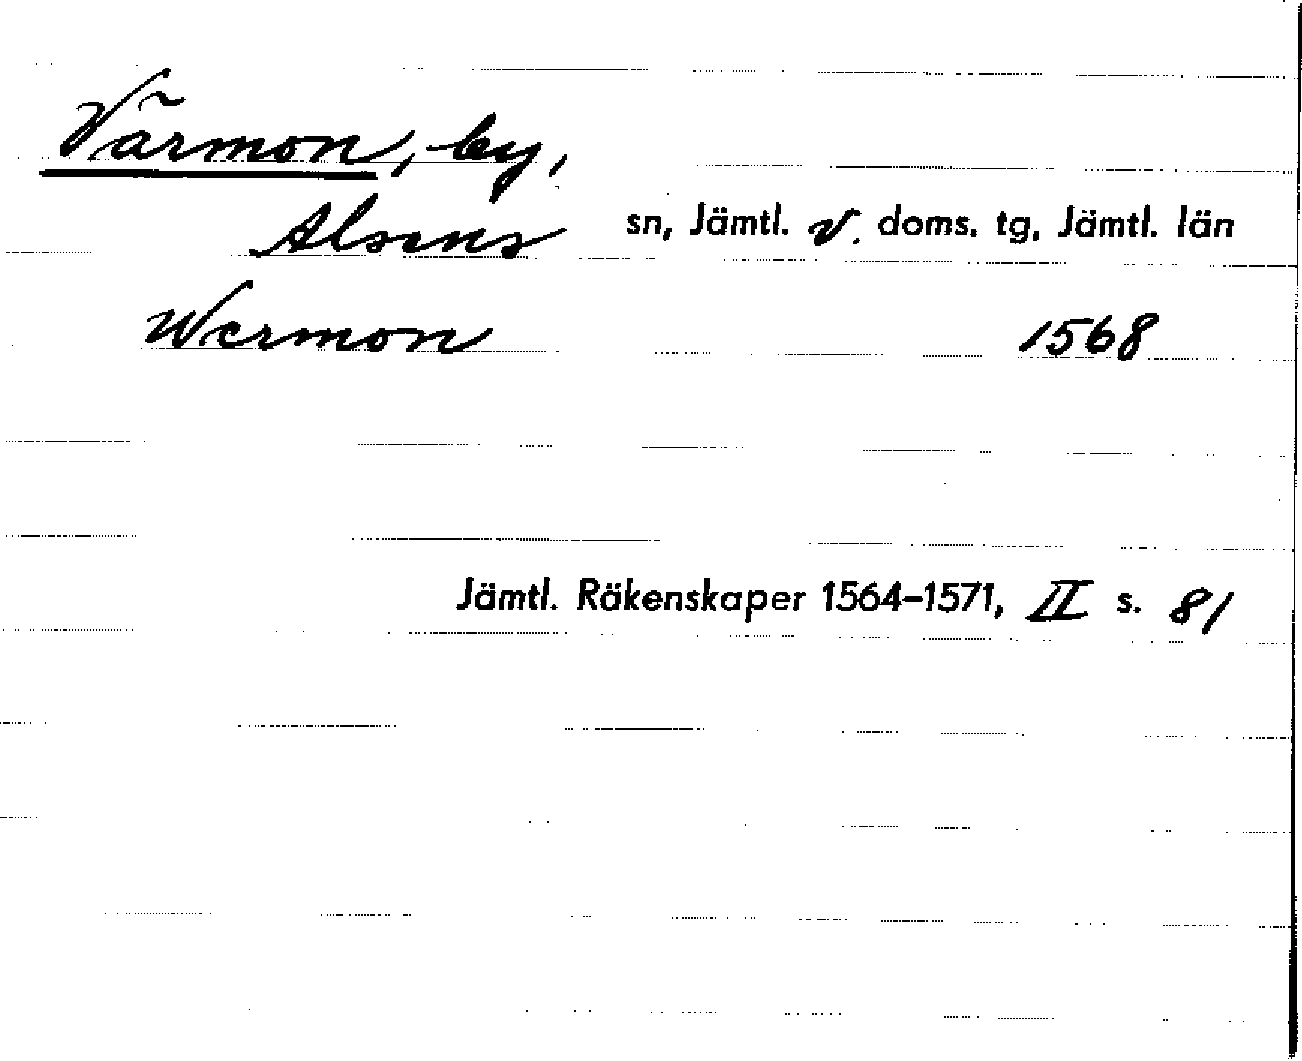 Värmon, by,
Alsens sn, Jämtl. v. doms. tg, Jämtl. län
Wermon 1568
Jämtl. Räkenskaper 1564–1571, II s. 81